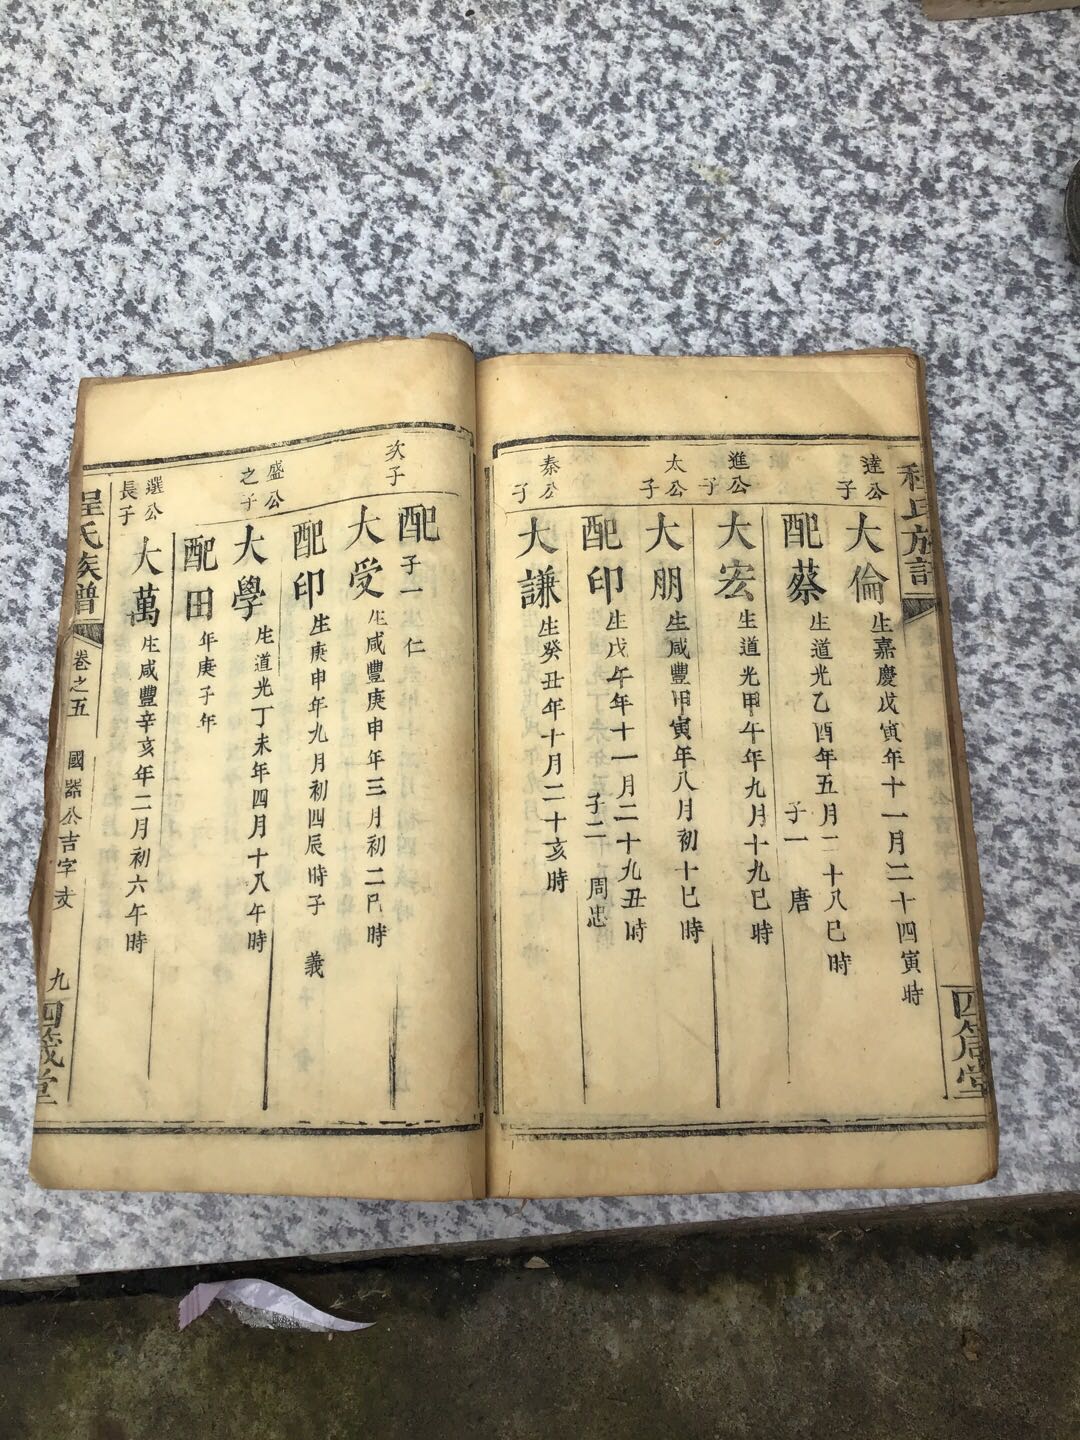 程氏族譜
四箴堂
達公
子
大倫生嘉慶戊寅年十一月二十四寅時
配蔡生道光乙酉年五月二十八巳時
子一 唐
進公
子
大宏生道光甲午年九月十九巳時
太公
子
大朋生咸豐甲寅年八月初十巳時
配印生戊午年十一月二十九丑時
子二 周忠
泰公
子
大謙生癸丑年十月二十亥時
次子
配子一 仁
大受生咸豐庚申年三月初二巳時
配印生庚申年九月初四辰時子 義
盛公
之子
大學生道光丁未年四月十八午時
配田年庚子年
選公
長子
大萬生咸豐辛亥年二月初六午時
程氏族譜
卷之五 國器公吉字支
九
四箴堂